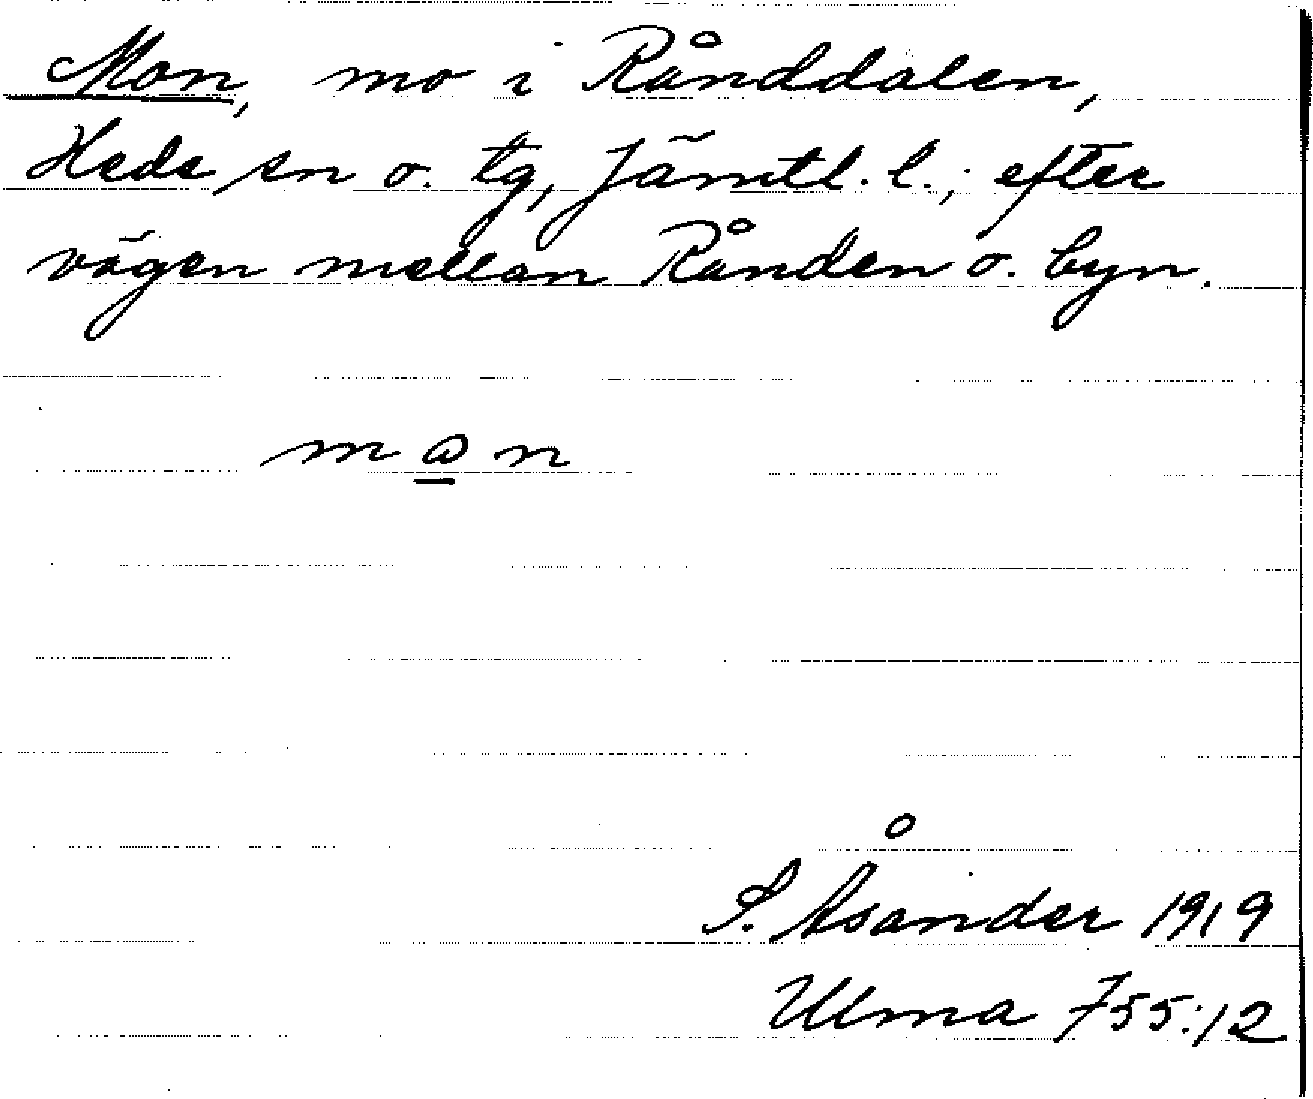 Mon, mo i Rånddalen,
Hede sn o. tg, Jämtl. l.; efter
vägen mellan Rånden o. byn.
S. Åsander 1919
Ulma 755:12